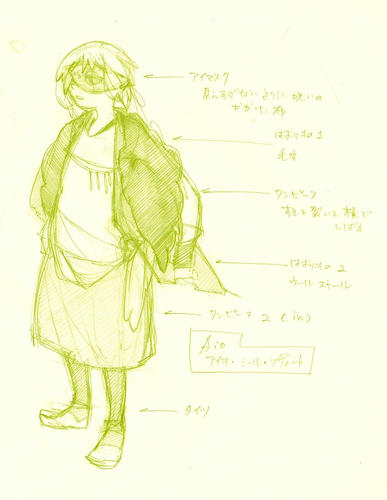 アイマスク
見えすぎないように 呪いの
かかった布
はおりもの 1
毛皮
ワンピース
すそを裂いて 横で
しばる
はおりもの 2
ウールストール
ワンピース 2 (in)
Aio
アイオ・シール・
タイツ